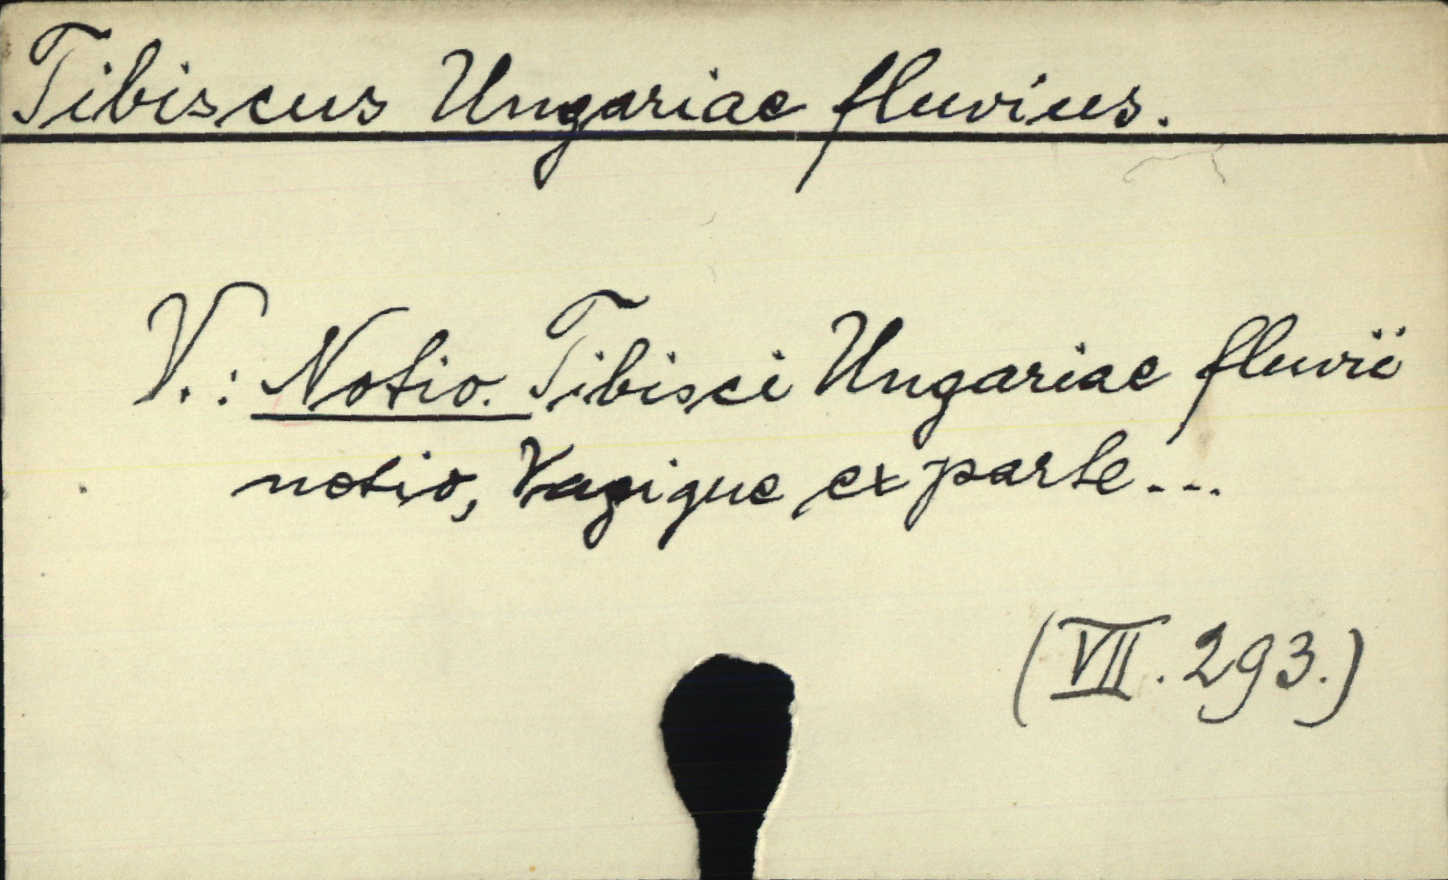 Tibiscus Ungariae fluvius.
V.: Notio. Tibisci Ungariae fluvii
notio, Vagique ex parte...
(VII. 293.)